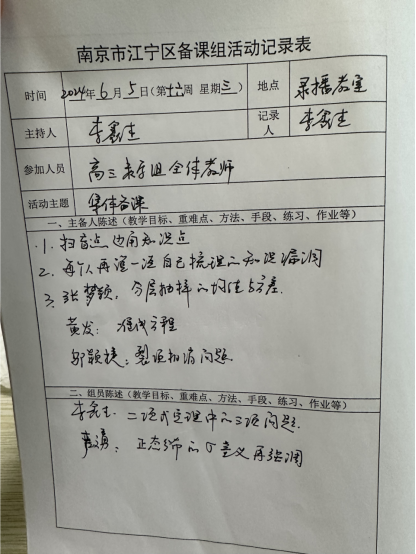 南京市江宁区备课组活动记录表
时间 2024年6月5日(第十六周 星期三) 地点 录播教室
主持人 李金生 记录人 李金生
参加人员 高三数学组全体教师
活动主题 集体备课
一、主备人陈述(教学目标、重难点、方法、手段、练习、作业等)
1. 扫盲点边角知识点
2. 每个人再演一注自己梳理的知识漏洞
3. 张梦颖:分层抽样的均值与方差.
黄发:准线方程
邹颖捷:裂项相消问题.
二、组员陈述(教学目标、重难点、方法、手段、练习、作业等)
二项式定理中的三项问题.
正态分布的σ意义再强调